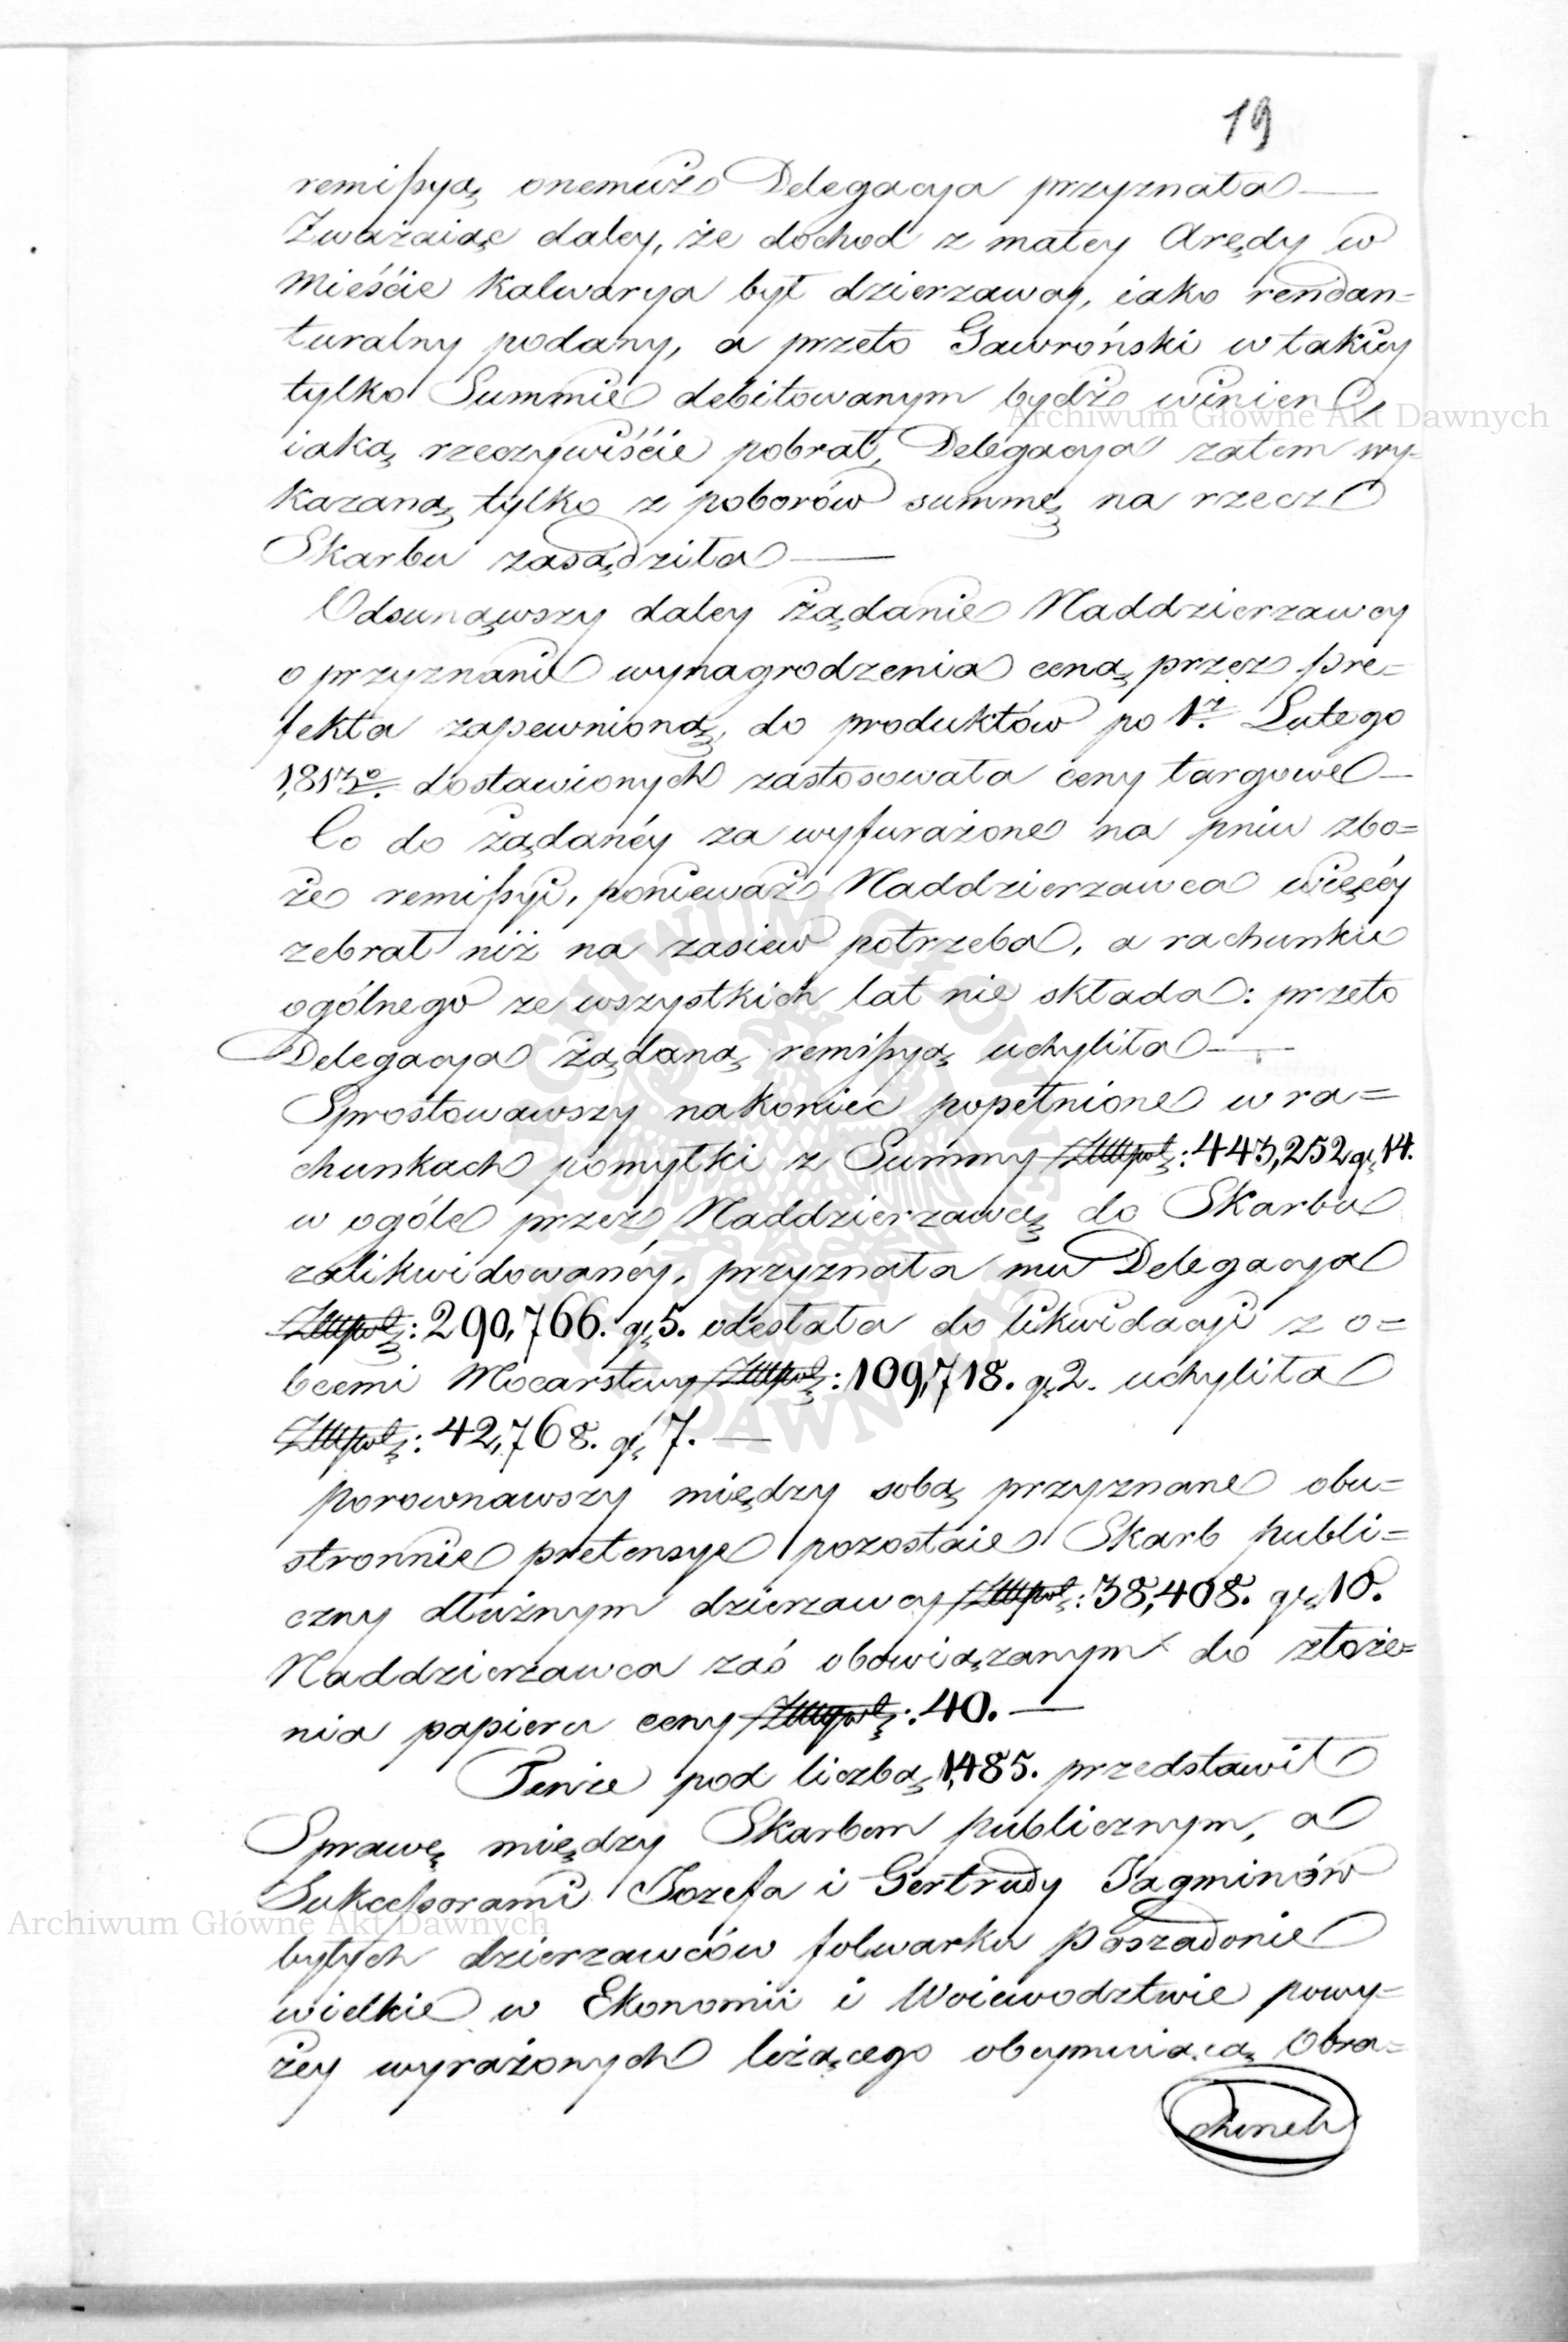 19
remissyą onemuż Delegacya przyznała —
Zważaiąc daley, że dochod z małey Arędy w
Mieście Kalwarya był dzierzawcy, iako rendan=
turalny podany, a przeto Gawroński w takiey
tylko Summie debitowanym bydź winien
iaką rzeczywiście pobrał, Delegacya zatem wy=
kazaną tylko z poborów summę na rzecz
Skarbu zasądziła —
Odsunąwszy daley żądanie Naddzierzawcy
o przyznanie wynagrodzenia ceną przez Pre=
fekta zapewnioną, do produktów po 1. Lutego
1,813o. dostawionych zastosowała ceny targowe —
Co do żądanéy za wyfurażone na pniu zbo=
że remissyi, ponieważ Naddzierzawca więcéy
zebrał niż na zasiew potrzeba, a rachunku
ogólnego ze wszystkich lat nie składa: przeto
Delegacya żądaną remissyą uchyliła —
Sprostowawszy nakoniec popełnione w ra=
chunkach pomyłki z Summy Złłpol: 443,252 gr 14.
w ogóle przez Naddzierzawcę do Skarbu
zalikwidowanéy, przyznała mu Delegacya
Złłpol: 290,766. gr 5. odesłała do likwidacyi z o=
bcemi Mocarstwy Złłpol: 109,718. gr 2. uchyliła
Złłpol: 42,768. gr 7. —
Porownawszy między sobą przyznane obu=
stronnie pretensye pozostaie Skarb publi=
czny dłużnym dzierzawcy Złłpol: 38,408. gr 10.
Naddzierzawca zaś obowiązanym do złoże=
nia papieru ceny Złłpol: 40. —
Tenże pod liczbą 1,485. przedstawił
Sprawę między Skarbem publicznym, a
Sukcessorami Jozefa i Gertrudy Jagminów
byłych dzierzawców folwarku Poszadonie
wielkie w Ekonomii i Woiewodztwie powy=
żey wyrażonych leżącego obeymuiącą Obra=
chunek
Archiwum Główne Akt Dawnych
Archiwum Główne Akt Dawnych
ARCHIWUM GŁÓWNE AKT DAWNYCH